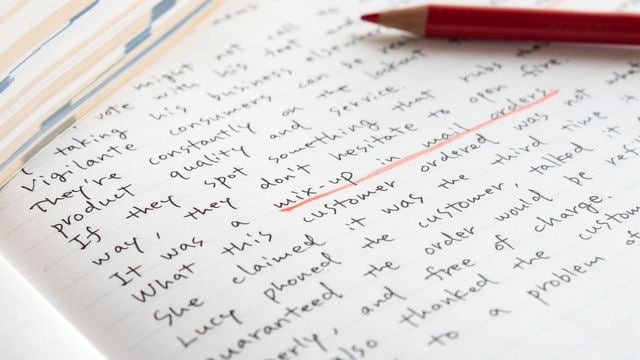 news
might not call to
vote with his feet and
taking his business
Vigilante consumers can be
They're constantly on the lookout
product quality and service.
If they spot something that rubs
way, they don't hesitate to open fire.
It was a mix-up in mail orders
What this customer ordered was not
She claimed it was the third time
Lucy phoned the customer, talked
guaranteed the order would be
erly, and free of charge.
also thanked the custom
to a problem